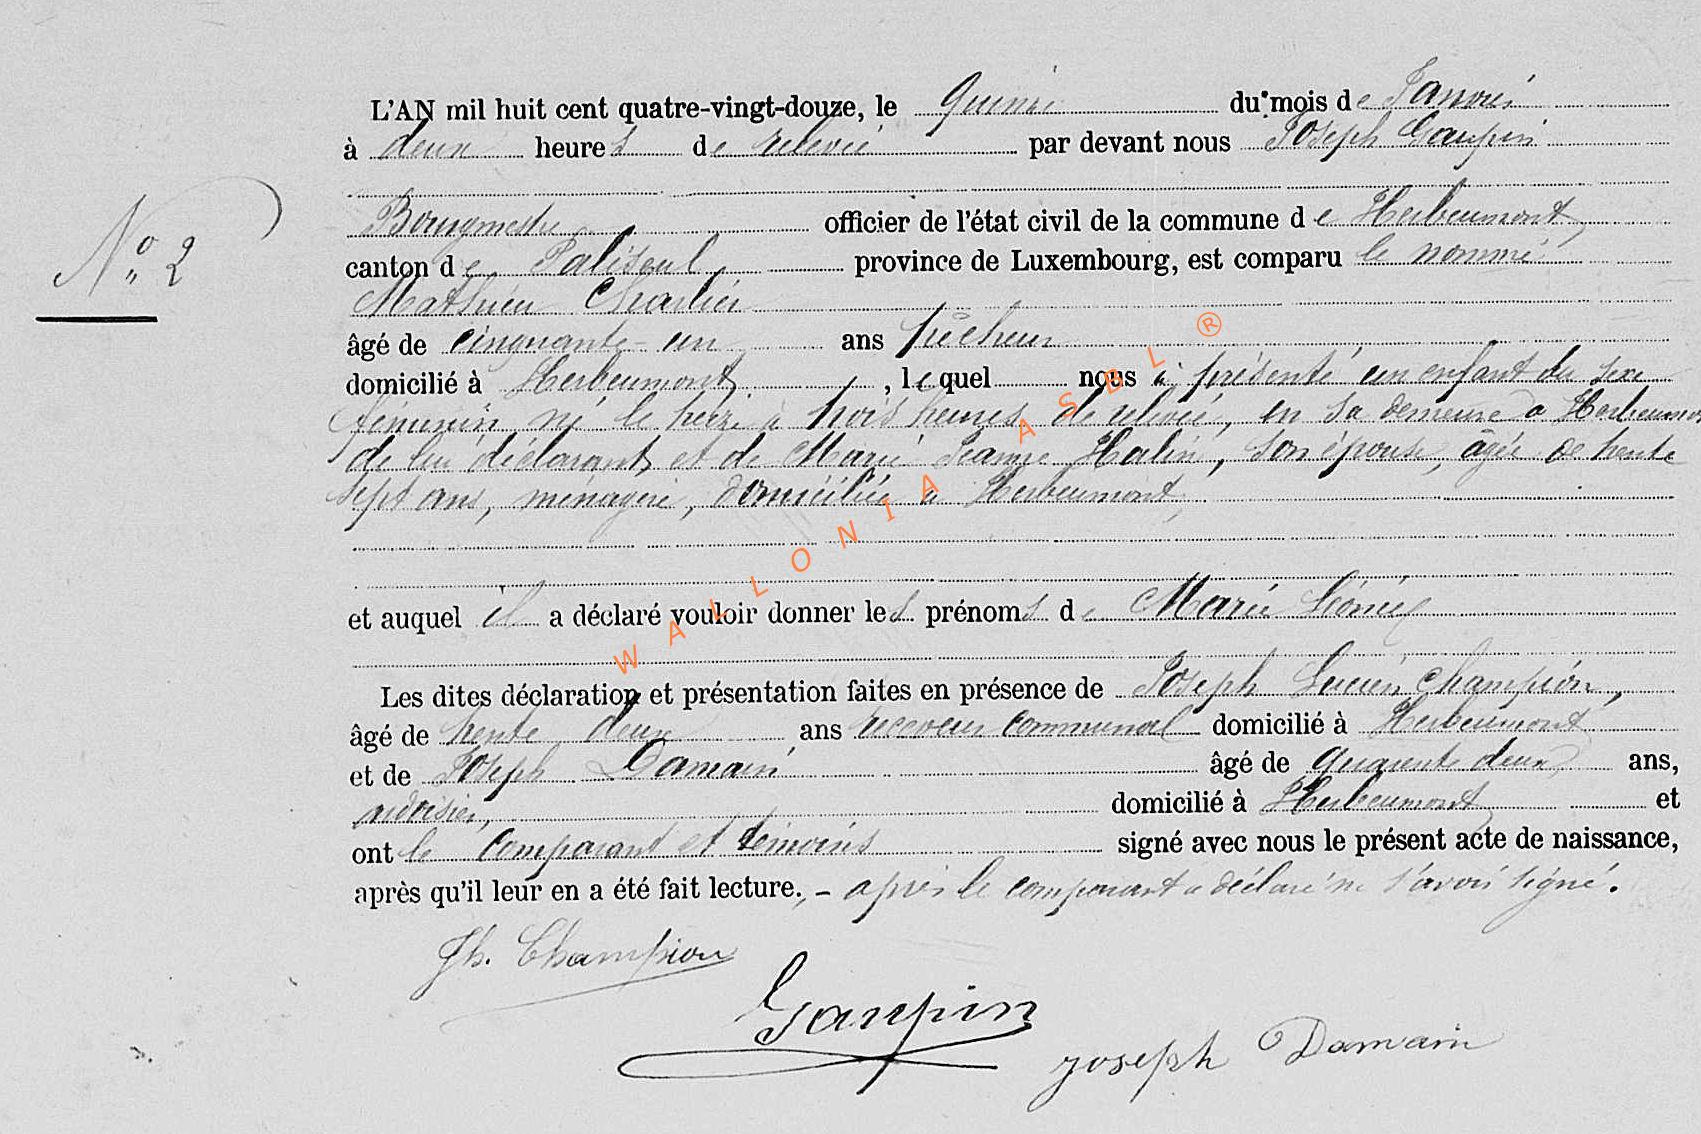 L'AN mil huit cent quatre-vingt-douze, le quinze du mois de Janvier
à deux heures de relevée par devant nous Joseph Gaupin
Bourgmestre officier de l'état civil de la commune de Herbeumont,
N° 2
canton de Paliseul, province de Luxembourg, est comparu le nommé
Mathieu Charlier
âgé de cinquante-un ans pêcheur
domicilié à Herbeumont, lequel nous a présenté un enfant du sexe
féminin né le treize à trois heures de relevée, en sa demeure à Herbeumont
de lui déclarant, et de Marie Jeanne Halin, son épouse, âgée de trente
sept ans, ménagère, domiciliée à Herbeumont,
et auquel il a déclaré vouloir donner les prénoms de Marie Léonie
Les dites déclaration et présentation faites en présence de Joseph Lucien Champion,
âgé de trente deux ans receveur communal domicilié à Herbeumont
et de Joseph Damain âgé de quarante deux ans,
ardoisier, domicilié à Herbeumont et
ont le comparant et témoins signé avec nous le présent acte de naissance,
après qu'il leur en a été fait lecture., - après le comparant a déclaré ne savoir signé.
Jh. Champion
Gaupin
Joseph Damain
WALLONIA ASBL ®